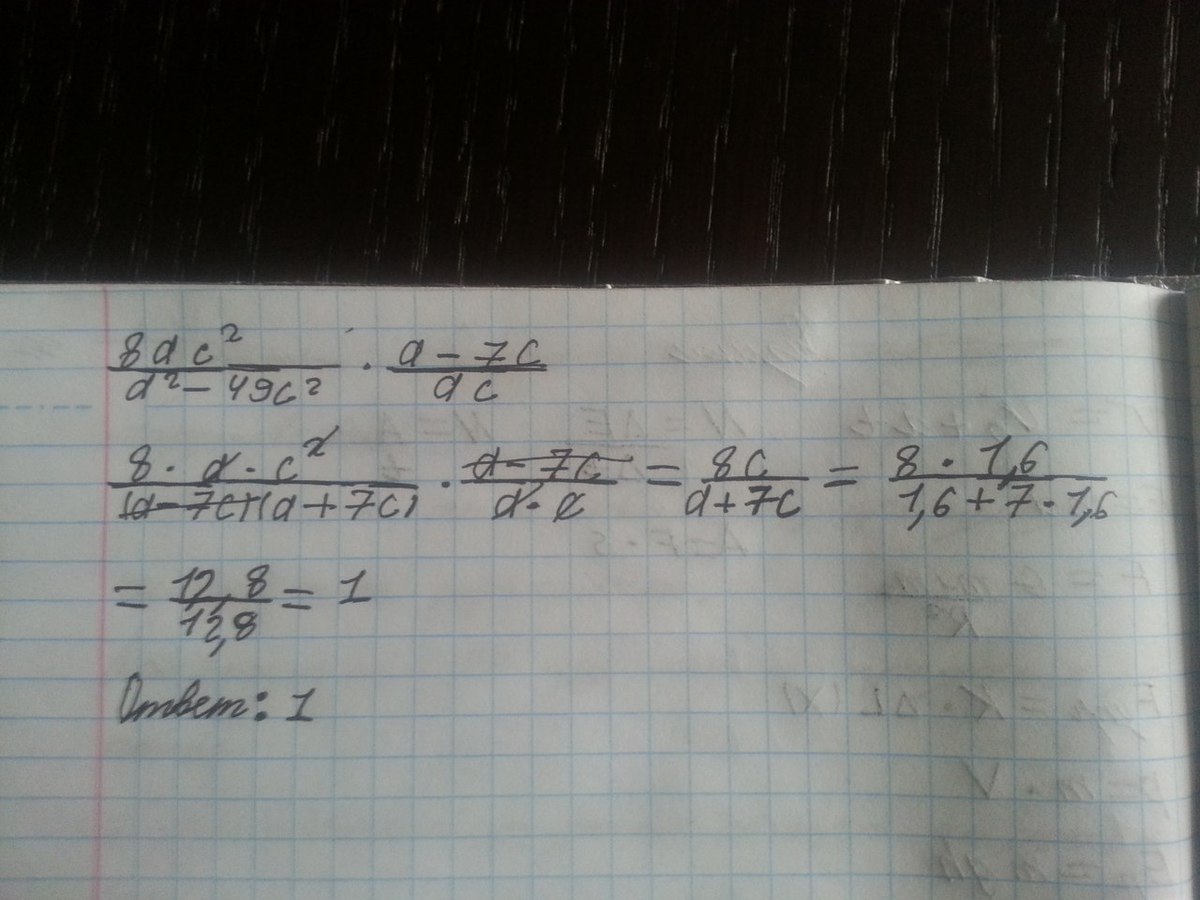 8ac²/(a² - 49c²) · (a - 7c)/(ac)
(8 · a · c²)/((a - 7c)(a + 7c)) · (a - 7c)/(a · c) = 8c/(a + 7c) = (8 · 1,6)/(1,6 + 7 · 1,6)
= 12,8/12,8 = 1
Ответ: 1